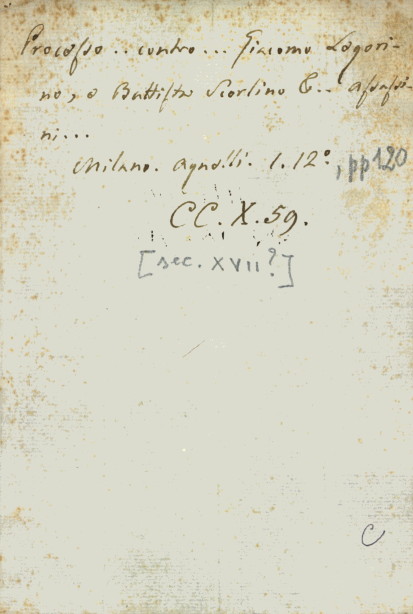 Processo .. contro ... Giacomo Legori-
no, e Battista Scorlino &.. assassi-
ni...
Milano. Agnelli. 1. 12°. , pp 120
CC. X. 59.
[sec. XVII?]
C